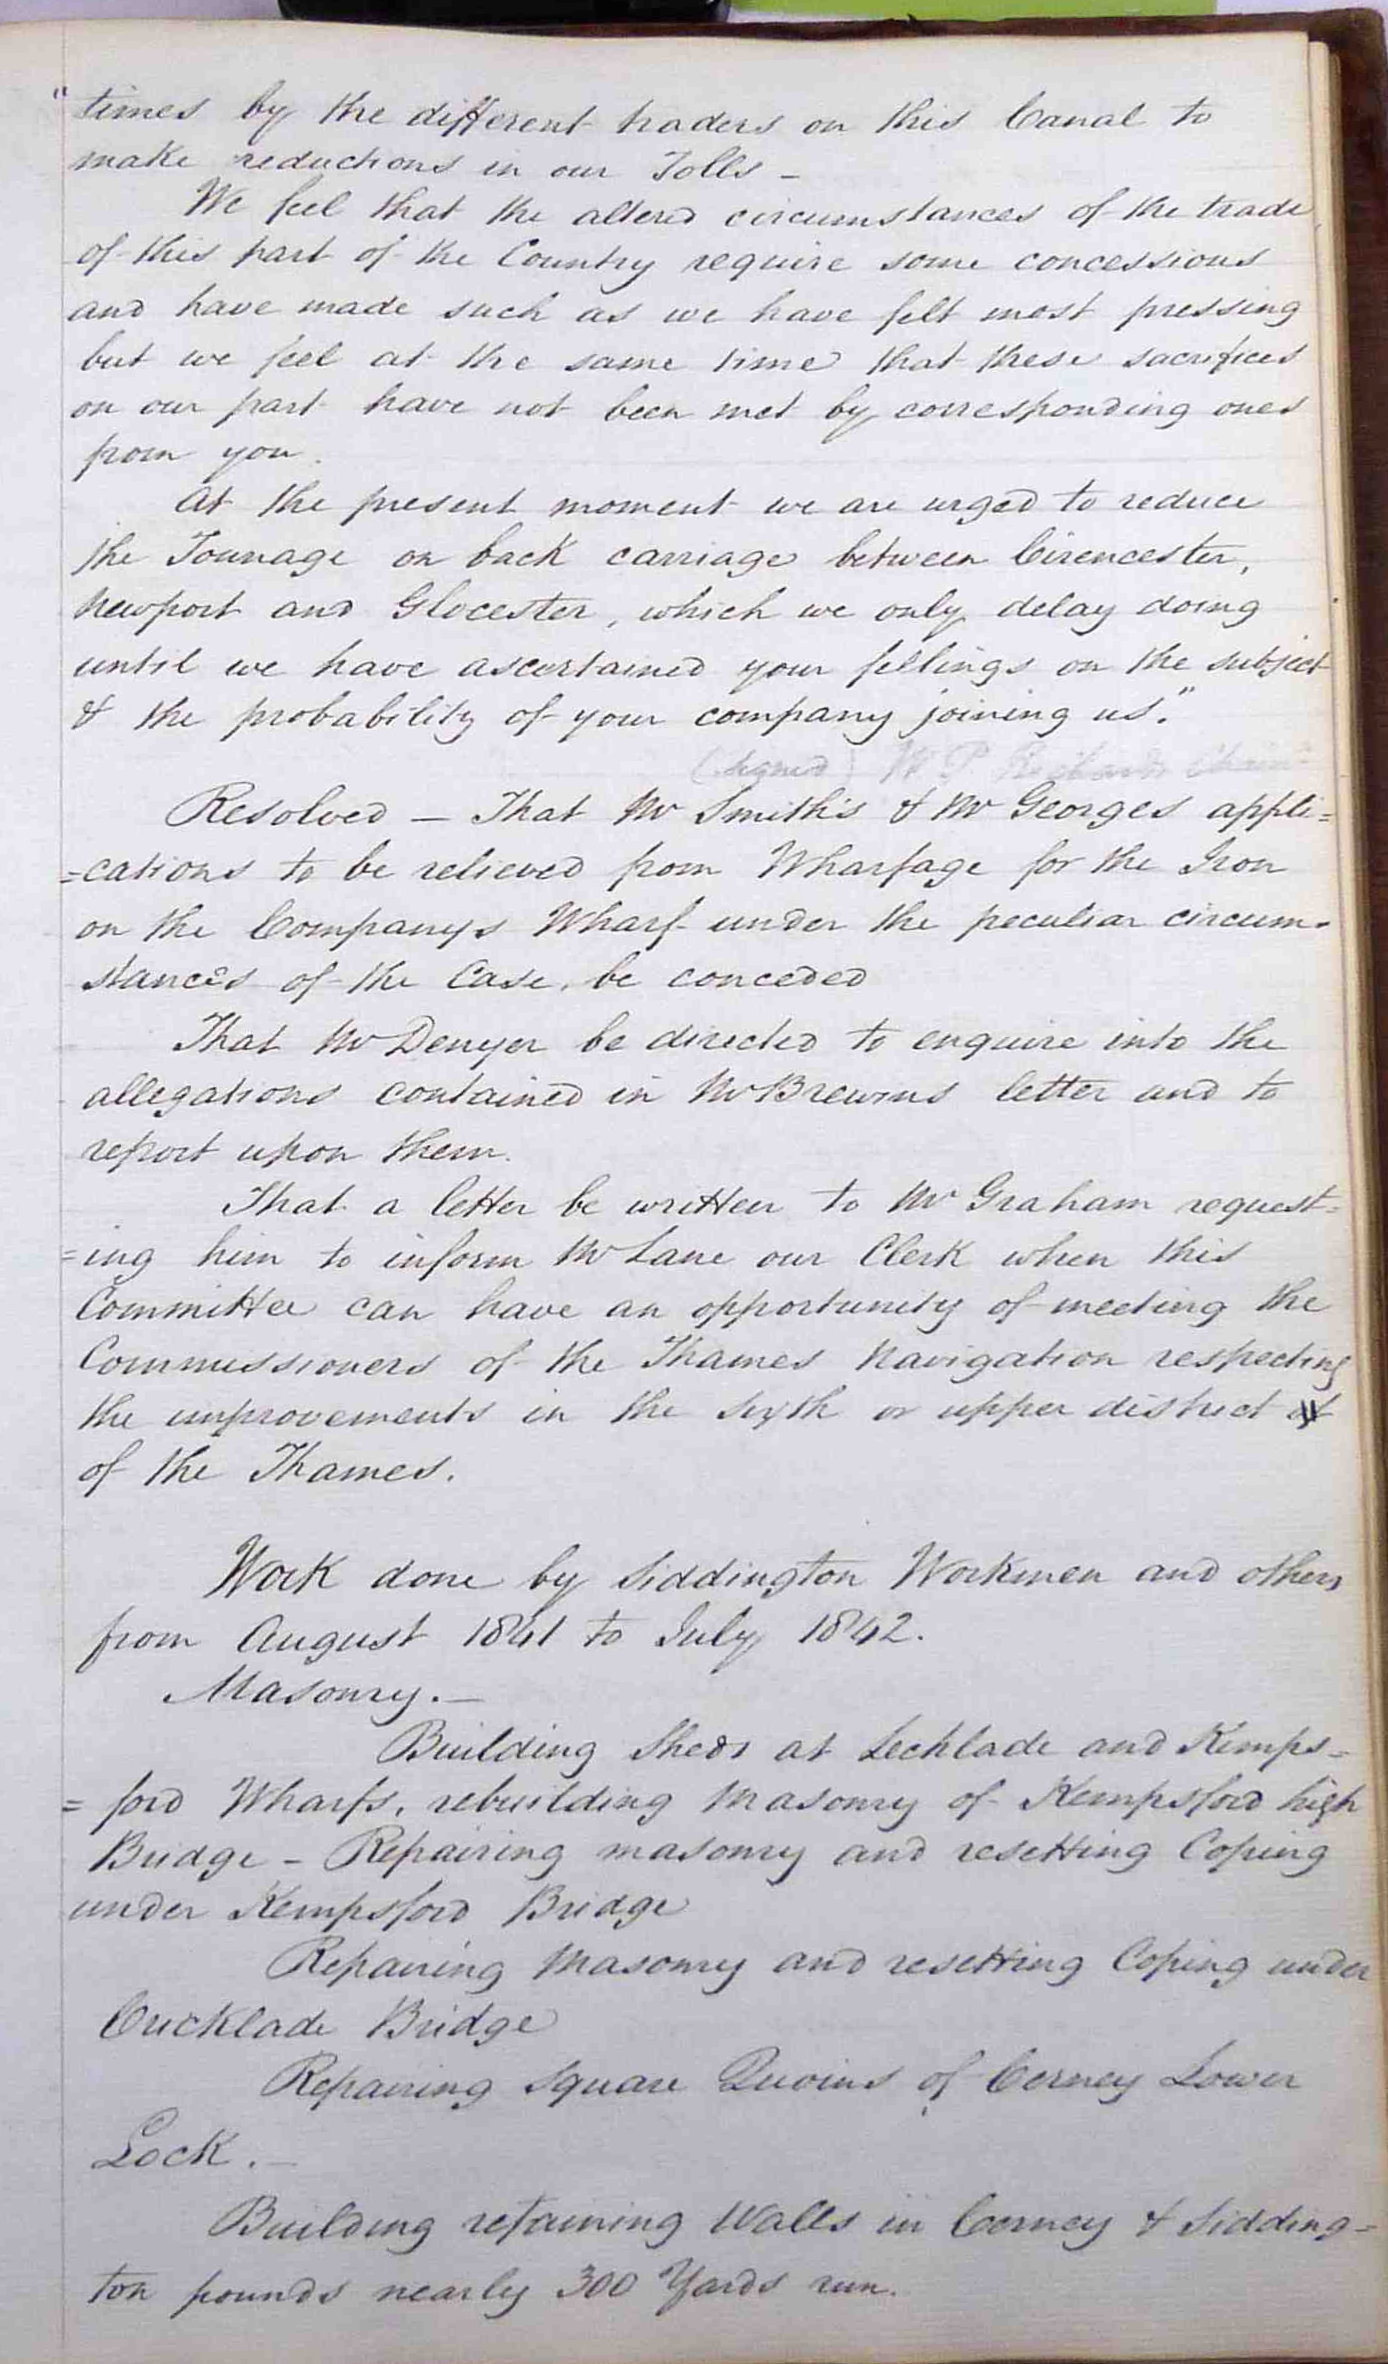 "times by the different traders on this Canal to
make reductions in our Tolls –
We feel that the altered circumstances of the trade
of this part of the Country require some concessions
and have made such as we have felt most pressing
but we feel at the same time that these sacrifices
on our part have not been met by corresponding ones
from you.
At the present moment we are urged to reduce
the Tonnage on back carriage between Cirencester,
Newport and Glocester, which we only delay doing
until we have ascertained your fellings on the subject
& the probability of your company joining us."
(signed) W P Richards Chairn
Resolved – That Mr Smith's & Mr Georges appli=
=cations to be relieved from Wharfage for the Iron
on the Companys Wharf under the peculiar circum-
stances of the Case, be conceded
That Mr Denyer be directed to enquire into the
allegations contained in Mr Brewins letter and to
report upon them.
That a letter be written to Mr Graham request=
=ing him to inform Mr Lane our Clerk when this
Committee can have an opportunity of meeting the
Commissioners of the Thames Navigation respecting
the improvements in the sixth or upper district
of the Thames.
Work done by Siddington Workmen and others
from August 1841 to July 1842.
Masonry. –
Building Sheds at Lechlade and Kemps=
=ford Wharfs, rebuilding Masonry of Kempsford high
Bridge – Repairing masonry and resetting Coping
under Kempsford Bridge
Repairing Masonry and resetting Coping under
Cricklade Bridge
Repairing Square Quoins of Cerney Lower
Lock. –
Building retaining Walls in Cerney & Sidding=
ton pounds nearly 300 Yards run.